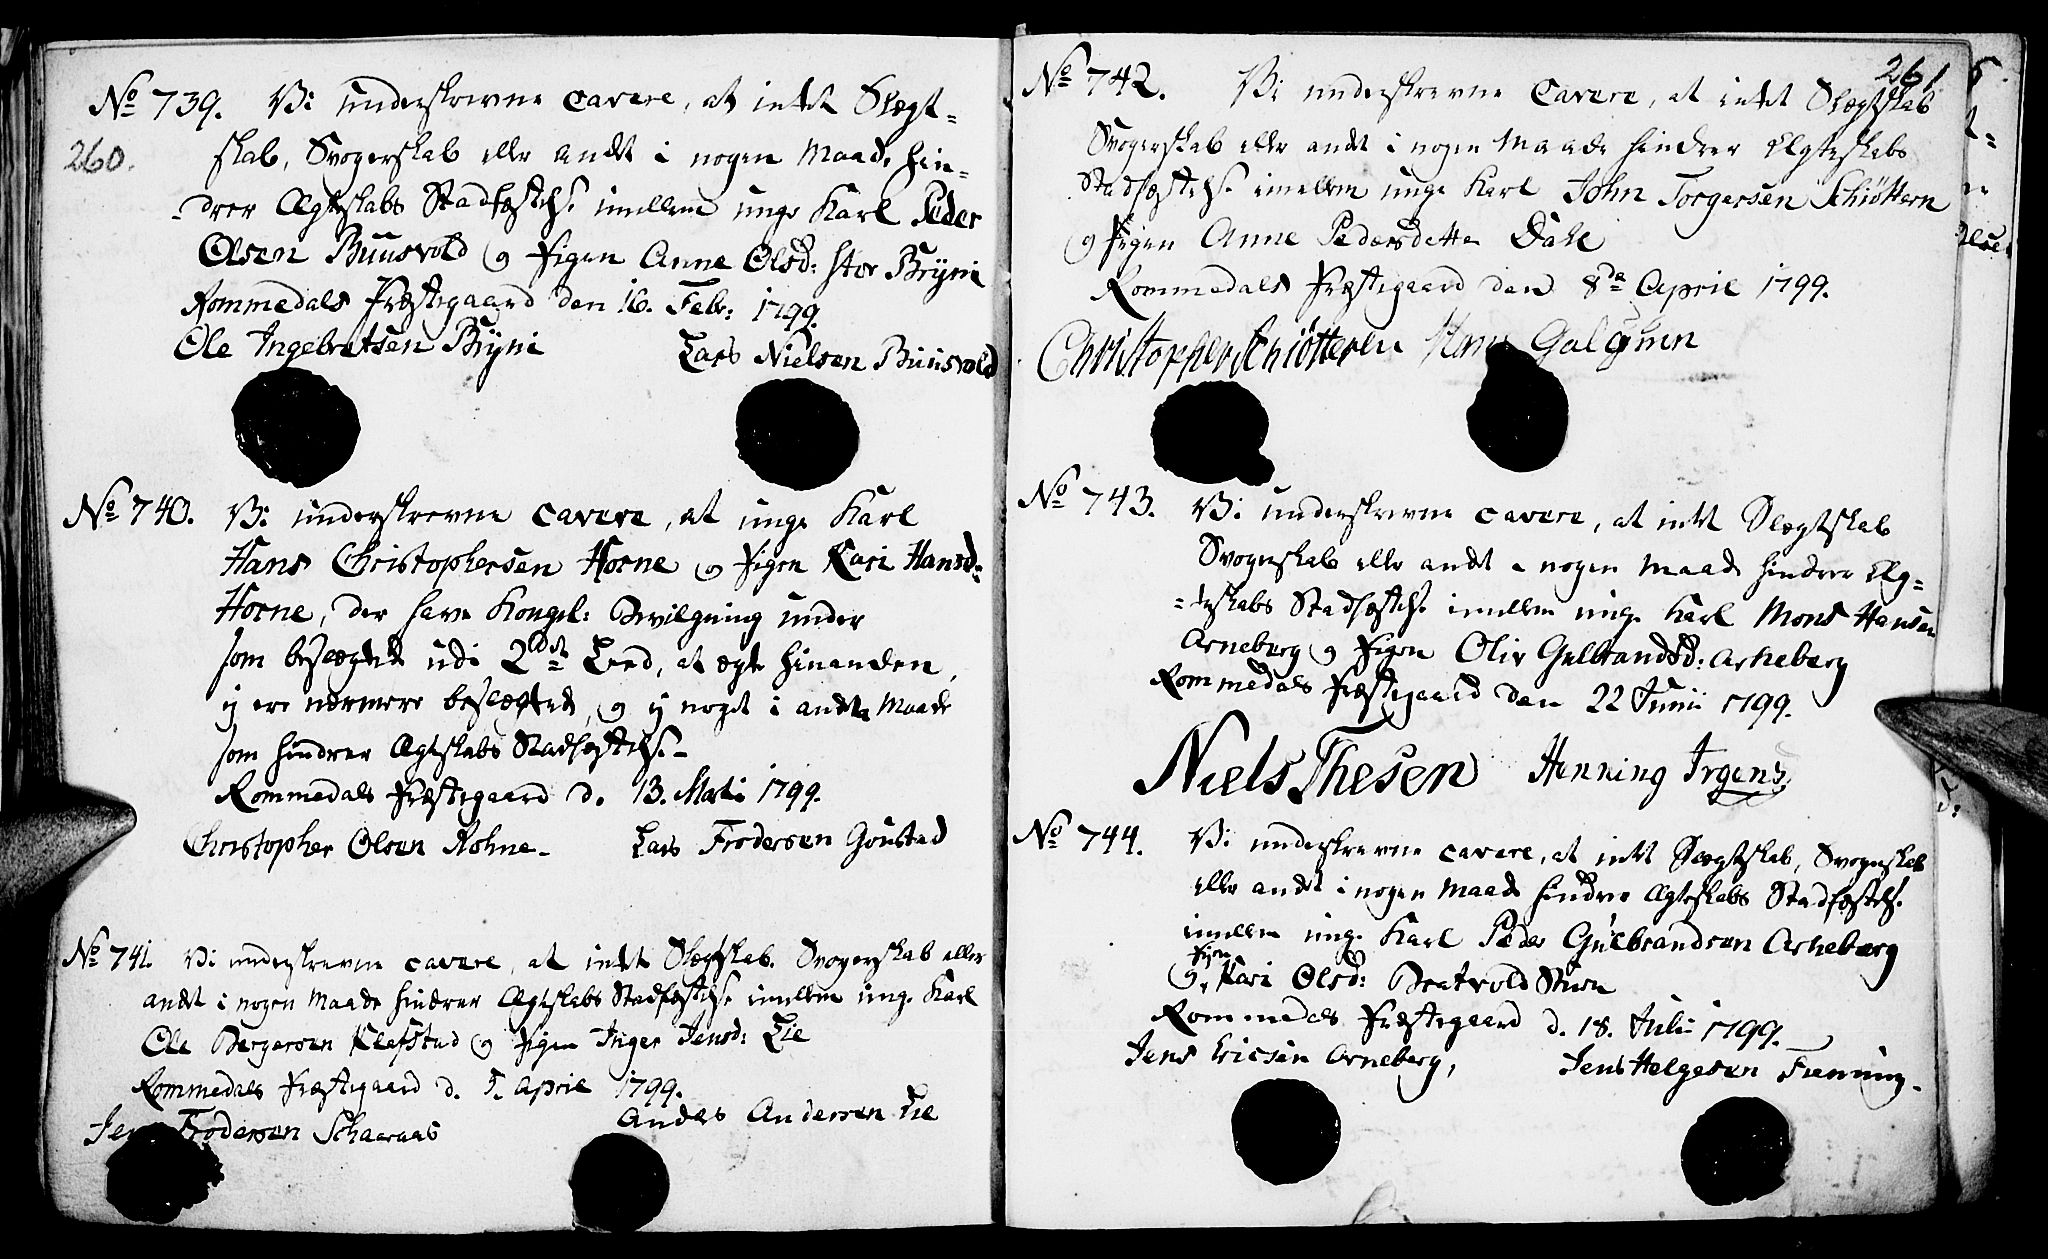 No 739. Vi underskrevne cavere, at intet Slægt-
260. skab, Svogerskab eller andet i nogen Maade hin-
-drer Ægteskabs Stadfæstelse imellem unge Karl Peder
Olsen Buusvold og Pigen Anne Olsd: stor Bryni
Rommedals Præstegaard den 16. Febr: 1799.
Ole Ingebretsen Bryni Lars Nielsen Buusvold
No 740. Vi underskrevne cavere, at unge Karl
Hans Christophersen Horne og Pigen Kari Hansd:
Horne, der have Kongel: Bevilgning under
som beslægtede udi 2det Leed, at ægte hinanden,
ej ere nærmere beslægtede, og ej noget i andet Maade
som hindrer Ægteskabs Stadfæstelse-
Rommedals Præstegaard d. 13. Marti 1799.
Christopher Olsen Rohne- Lars Frodersen Goustad
No 741. Vi underskrevne cavere, at intet Slægtskab, Svogerskab eller
andet i nogen Maade hindrer Ægteskabs Stadfæstelse imellem unge Karl
Ole Bergersen Klefstad og Pigen Inger Jensd: Lie
Rommedals Præstegaard d. 5. April 1799.
Frodersen Schaaraas Anders Andersen Lie
261
No 742. Vi underskrevne cavere, at intet Slægtskab
Svogerskab eller andet i nogen Maade hindrer Ægteskabs
Stadfæstelse imellem unge Karl John Torgersen Schiøttern
og Pigen Anne Pedersdatter Dahl
Rommedals Præstegaard den 8de April 1799.
Christopher Schiøtteren Hans Galguen
No 743. Vi underskrevne cavere, at intet Slægtskab
Svogerskab eller andet i nogen Maade hindrer Æg-
-teskabs Stadfæstelse imellem unge Karl Mons Hansen
Arneberg og Pigen Oliv Gulbrandsd: Arneberg
Rommedals Præstegaard den 22 Junii 1799.
Niels Thesen Henning Irgens
No 744. Vi underskrevne cavere, at intet Slægtskab, Svogerskab
eller andet i nogen Maade hindrer Ægteskabs Stadfæstelse
imellem unge Karl Peder Gulbrandsen Arneberg
og Pigen Kari Olsd: Bratvold
Rommedals Præstegaard d. 18. Julii 1799.
Jens Ericsen Arneberg, Jens Helgesen Fræning-